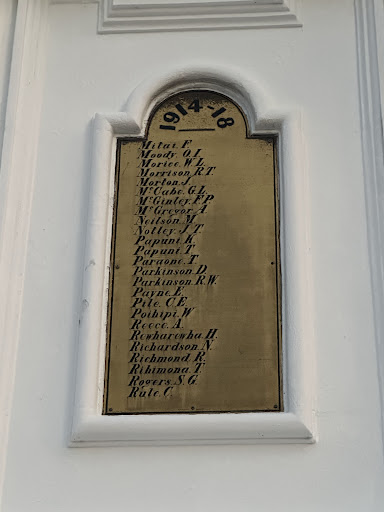 1914-18
Mitai. F.
Moody. O. I.
Morice. W. L.
Morrison. R. T.
Morton. J.
McCabe. G. L.
McGinley. F. P.
McGregor. A
Neilson. M.
Notley. J. T.
Papuni. K.
Papuni. T.
Paraone. T.
Parkinson. D.
Parkinson. R. W.
Payne. E.
Pile. C. E.
Poihipi. W
Reece. A.
Rewharewha. H.
Richardson. N.
Richmond. R.
Rihimona. T.
Rogers. S. G
Rule. C.